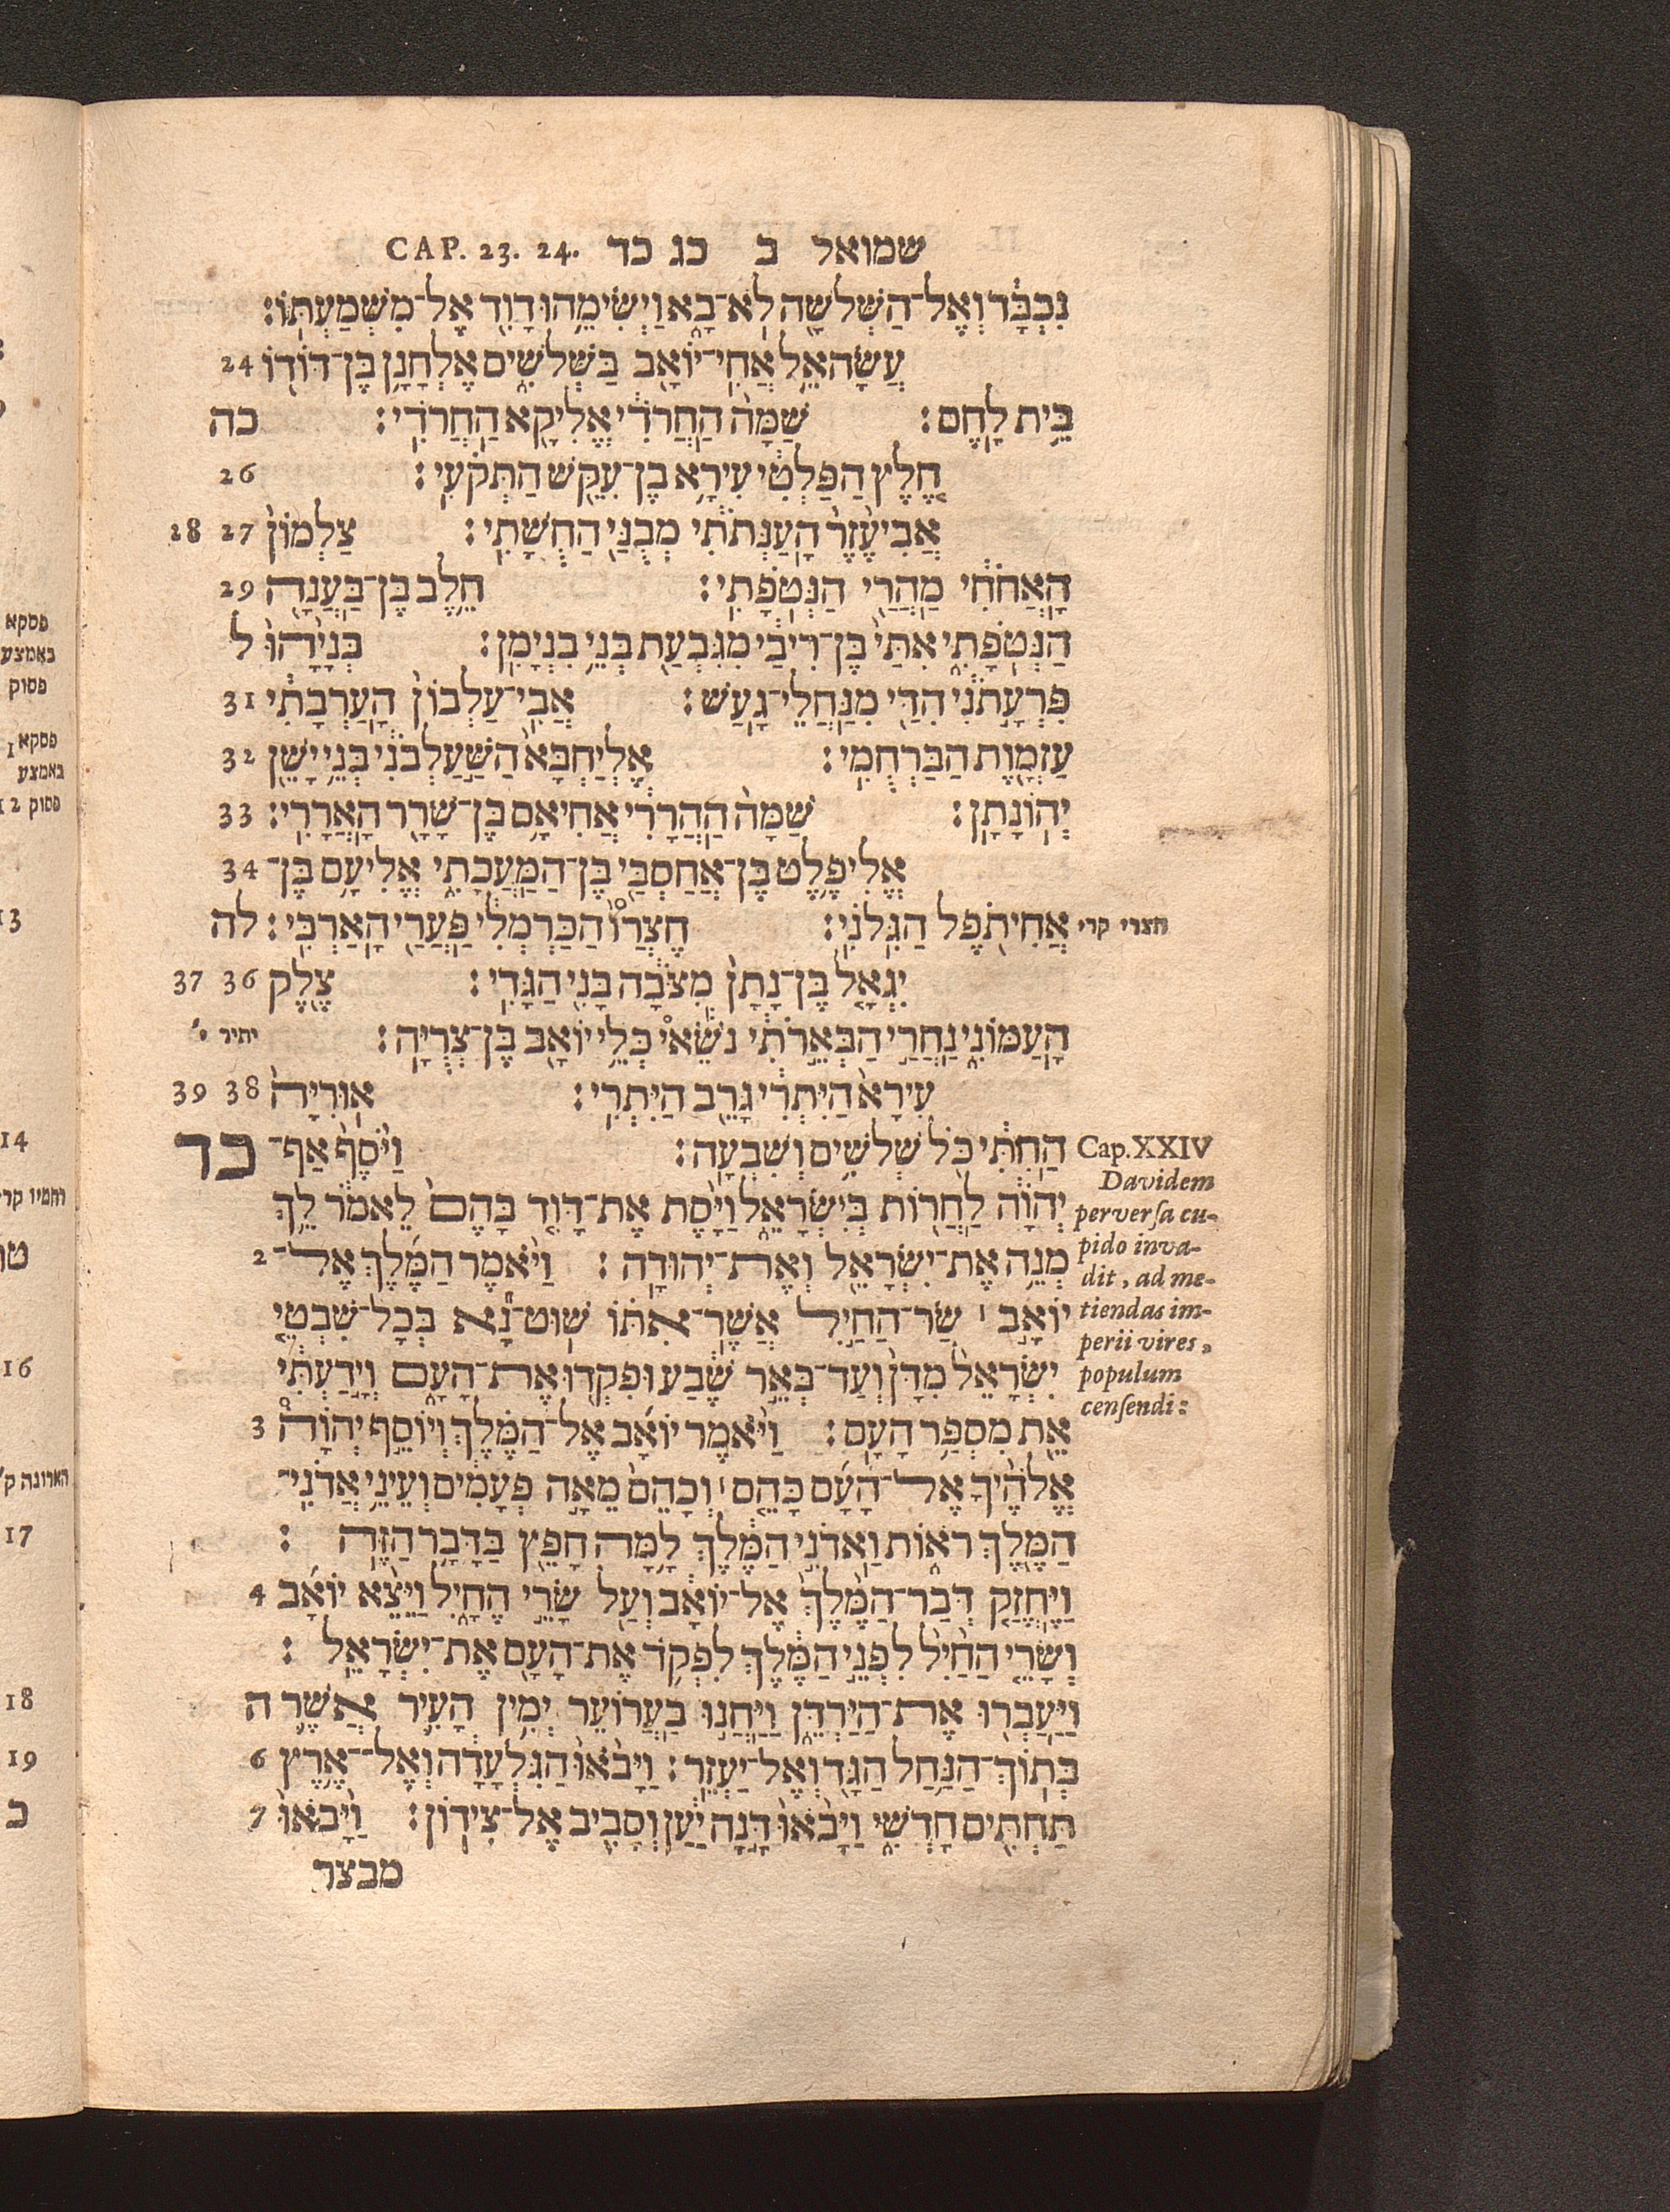 שמואל ב כג כד CAP. 23. 24.
נִכְבָּ֔ד וְאֶל־הַשְּׁלֹשָׁ֖ה לֹא־בָ֑א וַיְשִׂימֵ֥הוּ דָוִ֖ד אֶל־מִשְׁמַעְתּֽוֹ׃
עֲשָׂהאֵ֥ל אֲחִֽי־יוֹאָ֖ב בַּשְּׁלֹשִׁ֑ים אֶלְחָנָ֥ן בֶּן־דּוֹד֖וֹ 24
בֵּ֥ית לָֽחֶם׃ שַׁמָּה֙ הַֽחֲרֹדִ֔י אֱלִיקָ֖א הַֽחֲרֹדִֽי׃ כה
חֶ֚לֶץ הַפַּלְטִ֔י עִירָ֥א בֶן־עִקֵּ֖שׁ הַתְּקֹעִֽי׃ 26
אֲבִיעֶ֨זֶר֙ הָֽעַנְּתֹתִ֔י מְבֻנַּ֖י הַחֻֽשָׁתִֽי׃ צַלְמוֹן֙ 27 28
הָֽאֲחֹחִ֔י מַֽהֲרַ֖י הַנְּטֹֽפָתִֽי׃ חֵ֥לֶב בֶּֽן־בַּֽעֲנָ֖ה 29
הַנְּטֹֽפָתִ֑י אִתַּי֙ בֶּן־רִיבַ֔י מִגִּבְעַ֖ת בְּנֵ֥י בִנְיָמִֽן׃ בְּנָיָ֨הוּ֙ ל
פִּרְעָ֣תֹנִ֔י הִדַּ֖י מִנַּֽחֲלֵי־גָֽעַשׁ׃ אֲבִֽי־עַלְבוֹן֙ הָֽעַרְבָתִ֔י 31
עַזְמָ֖וֶת הַבַּרְחֻמִֽי׃ אֶלְיַחְבָּא֙ הַשַּׁ֣עַלְבֹנִ֔י בְּנֵ֥י יָשֵׁ֖ן 32
יְהֽוֹנָתָֽן׃ שַׁמָּה֙ הַֽהֲרָרִ֔י אֲחִיאָ֥ם בֶּן־שָׁרָ֖ר הָֽאֲרָרִֽי׃ 33
אֱלִיפֶ֥לֶט בֶּן־אֲחַסְבַּ֖י בֶּן־הַמַּֽעֲכָתִ֑י אֱלִיעָ֥ם בֶּן־ 34
אֲחִיתֹ֖פֶל הַגִּֽלֹנִֽי׃ חֶצְרַו֙ הַכַּרְמְלִ֔י פַּֽעֲרַ֖י הָֽאַרְבִּֽי׃ לה
חצרי קרי
יִגְאָ֤ל בֶּן־נָתָן֙ מִצֹּבָ֔ה בָּנִ֖י הַגָּדִֽי׃ צֶ֖לֶק 36 37
הָֽעַמּוֹנִ֑י נַֽחֲרַי֙ הַבְּאֵ֣רֹתִ֔י נֹשֵׂאי֙ כְּלֵ֖י יוֹאָ֥ב בֶּן־צְרֻיָֽה׃ יתיר י׳
עִירָא֙ הַיִּתְרִ֔י גָּרֵ֖ב הַיִּתְרִֽי׃ אֽוּרִיָּה֙ 38 39
הַֽחִתִּ֔י כֹּ֖ל שְׁלֹשִׁ֥ים וְשִׁבְעָֽה׃ וַיֹּ֨סֶף֙ אַף־ כד
Cap. XXIV
Davidem
perversa cu-
pido inva-
dit, ad me-
tiendas im-
perii vires,
populum
censendi:
יְהוָ֔ה לַֽחֲר֖וֹת בְּיִשְׂרָאֵ֑ל וַיָּ֨סֶת אֶת־דָּוִ֤ד בָּהֶם֙ לֵאמֹ֔ר לֵ֛ךְ
מְנֵ֥ה אֶת־יִשְׂרָאֵ֖ל וְאֶת־יְהוּדָֽה׃ וַיֹּ֨אמֶר הַמֶּ֜לֶךְ אֶל־ 2
יוֹאָ֣ב ׀ שַׂר־הַחַ֣יִל אֲשֶׁר־אִתּ֗וֹ שֽׁוּט־נָ֞א בְּכָל־שִׁבְטֵ֤י
יִשְׂרָאֵל֙ מִדָּן֙ וְעַד־בְּאֵ֣ר שֶׁ֔בַע וּפִקְד֖וּ אֶת־הָעָ֑ם וְיָ֣דַעְתִּ֔י
אֵ֖ת מִסְפַּ֥ר הָעָֽם׃ וַיֹּ֨אמֶר יוֹאָ֜ב אֶל־הַמֶּ֗לֶךְ וְיוֹסֵ֣ף יְהוָה֩ 3
אֱלֹהֶ֨יךָ אֶל־הָעָ֜ם כָּהֵ֤ם ׀ וְכָהֵם֙ מֵאָ֣ה פְעָמִ֔ים וְעֵינֵ֥י אֲדֹנִֽי־
הַמֶּ֖לֶךְ רֹא֑וֹת וַֽאדֹנִ֣י הַמֶּ֔לֶךְ לָ֥מָּה חָפֵ֖ץ בַּדָּבָ֥ר הַזֶּֽה׃
וַיֶּֽחֱזַ֤ק דְּבַר־הַמֶּ֨לֶךְ֙ אֶל־יוֹאָ֔ב וְעַ֖ל שָׂרֵ֣י הֶחָ֑יִל וַיֵּצֵ֨א יוֹאָ֜ב 4
וְשָׂרֵ֤י הַחַ֨יִל֙ לִפְנֵ֣י הַמֶּ֔לֶךְ לִפְקֹ֥ד אֶת־הָעָ֖ם אֶת־יִשְׂרָאֵֽל׃
וַיַּֽעַבְר֖וּ אֶת־הַיַּרְדֵּ֑ן וַיַּֽחֲנ֣וּ בַֽעֲרוֹעֵ֗ר יְמִ֥ין הָעִ֛יר אֲשֶׁ֛ר ה
בְּתֽוֹךְ־הַנַּ֥חַל הַגָּ֖ד וְאֶל־יַעְזֵֽר׃ וַיָּבֹ֨אוּ֙ הַגִּלְעָ֔דָה וְאֶל־אֶ֥רֶץ 6
תַּחְתִּ֖ים חָדְשִׁ֑י וַיָּבֹ֨אוּ֙ דָּ֣נָה יַּ֔עַן וְסָבִ֖יב אֶל־צִידֽוֹן׃ וַיָּבֹ֨אוּ֙ 7
מבצר
פסקא
באמצע
פסוק
פסקא
באמצע
פסוק 12
13
14
16
הארונה ק׳
17
18
19
כ